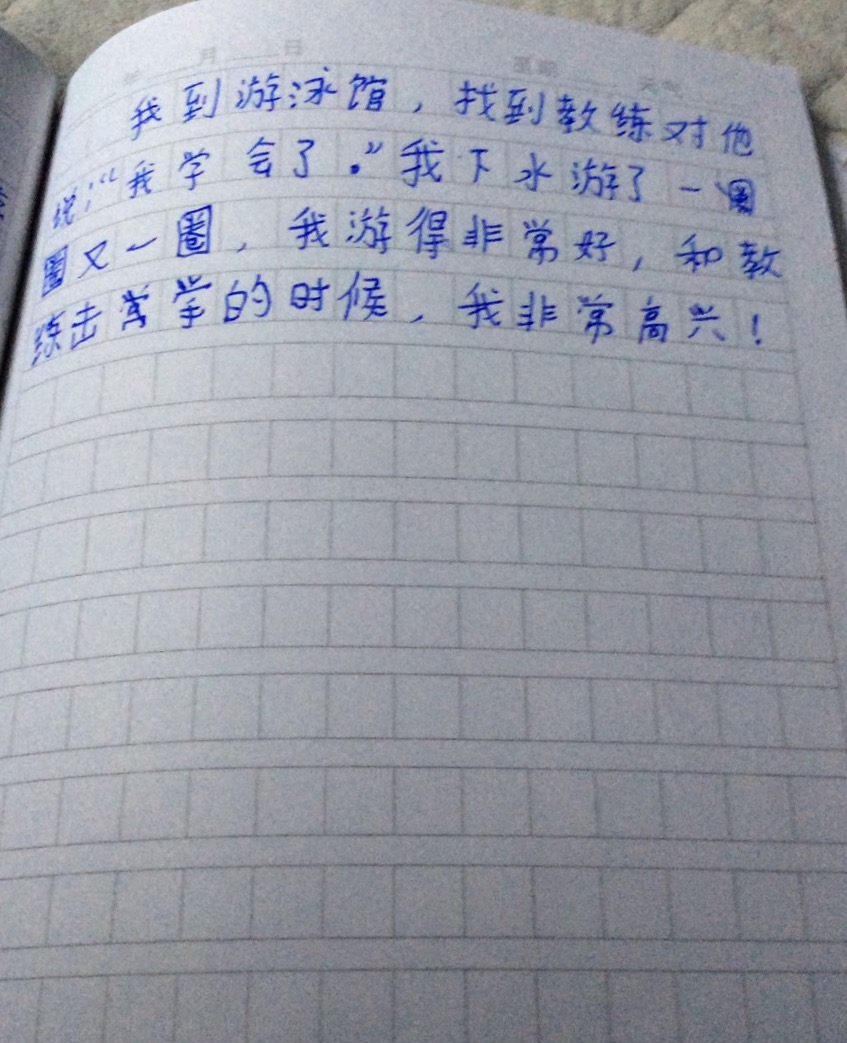 年 月 日 星期 天气
我到游泳馆，找到教练对他
说：“我学会了。”我下水游了一圈
圈又一圈，我游得非常好，和教
练击掌的时候，我非常高兴！